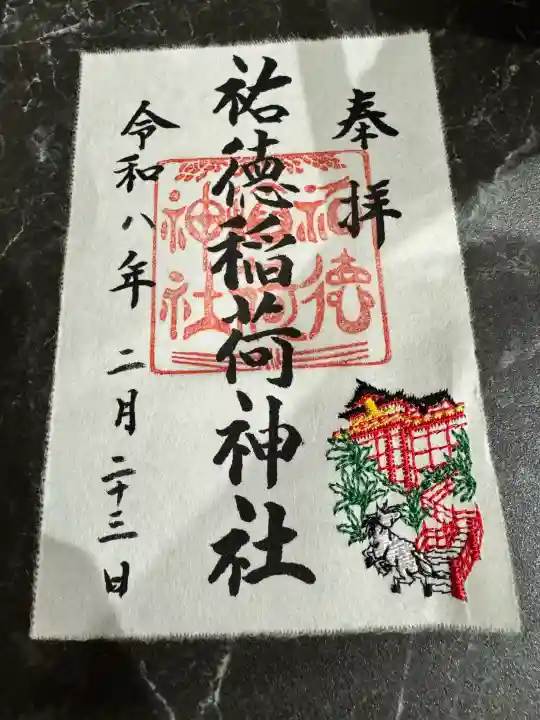 奉拝
祐徳稲荷神社
祐徳稲荷神社
令和八年 二月 二十三日